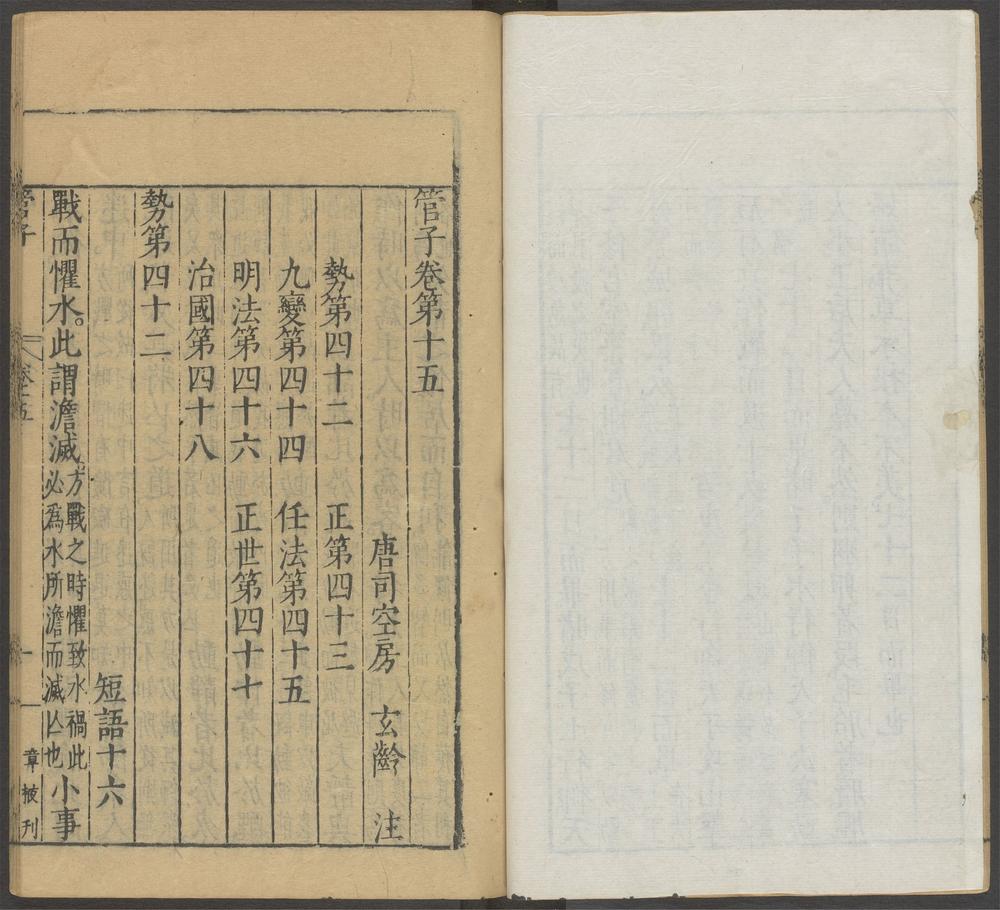 管子卷第十五
唐司空房 玄齡 注
勢第四十二 正第四十三
九變第四十四 任法第四十五
明法第四十六 正世第四十七
治國第四十八
勢第四十二
短語十六
戰而懼水。此謂澹滅方戰之時懼致水禍此
必爲水所澹而滅亾也小事
管子
卷十五
一
章掖刊